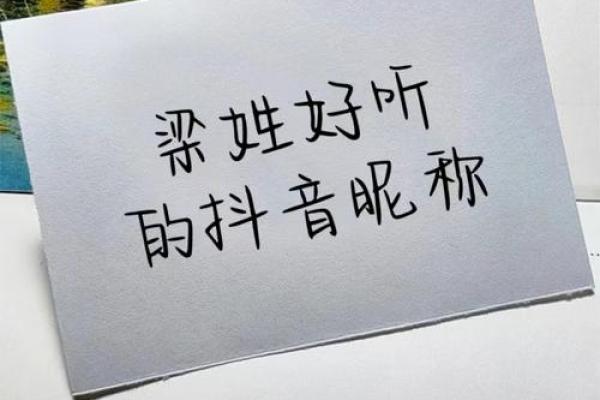 梁姓好听
的抖音昵称